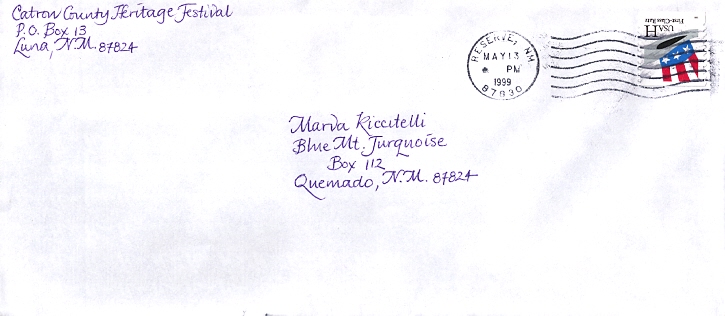 Catron County Heritage Festival
P.O. Box 13
Luna, N.M. 87824
RESERVE, NM
MAY 13
PM
1999
87830
USA H
First-Class Rate
Marva Riccitelli
Blue Mt. Turquoise
Box 112
Quemado, N.M. 87824